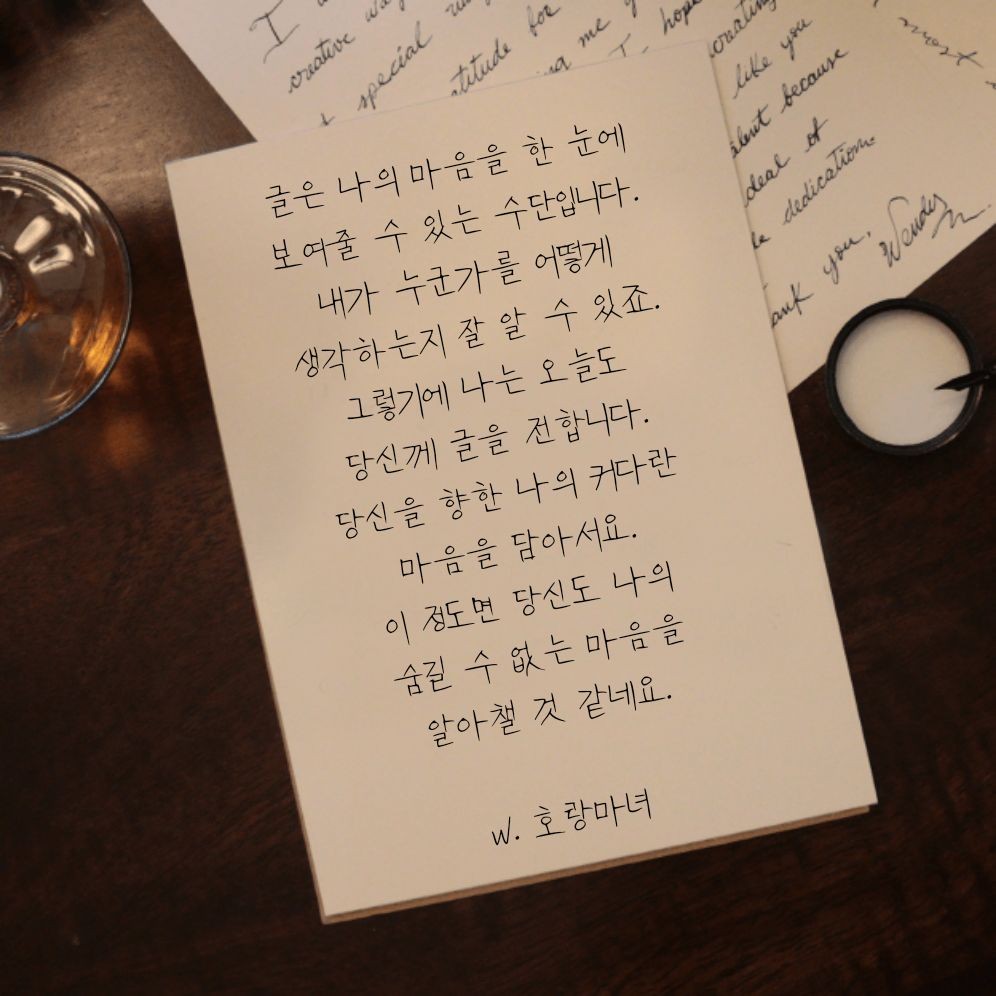 I
creative way
special
for
me
I hope
creating
like you
because
deal of
dedication.
you,
Wendy
글은 나의 마음을 한 눈에
보여줄 수 있는 수단입니다.
내가 누군가를 어떻게
생각하는지 잘 알 수 있죠.
그렇기에 나는 오늘도
당신께 글을 전합니다.
당신을 향한 나의 커다란
마음을 담아서요.
이 정도면 당신도 나의
숨길 수 없는 마음을
알아챌 것 같네요.
w. 호랑마녀